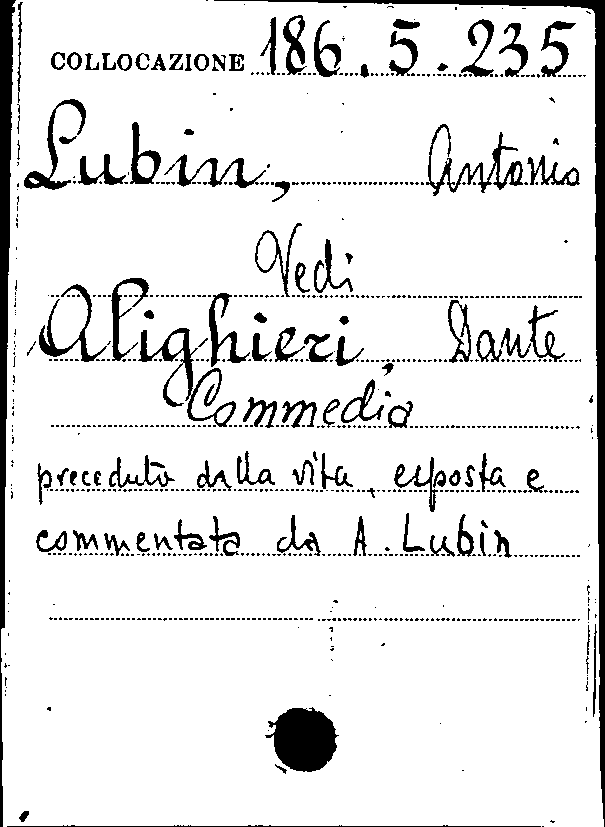 COLLOCAZIONE 186.5.235
Lubin, Antonio
Vedi
Alighieri, Dante
Commedia
preceduta dalla vita, esposta e
commentata da A. Lubin